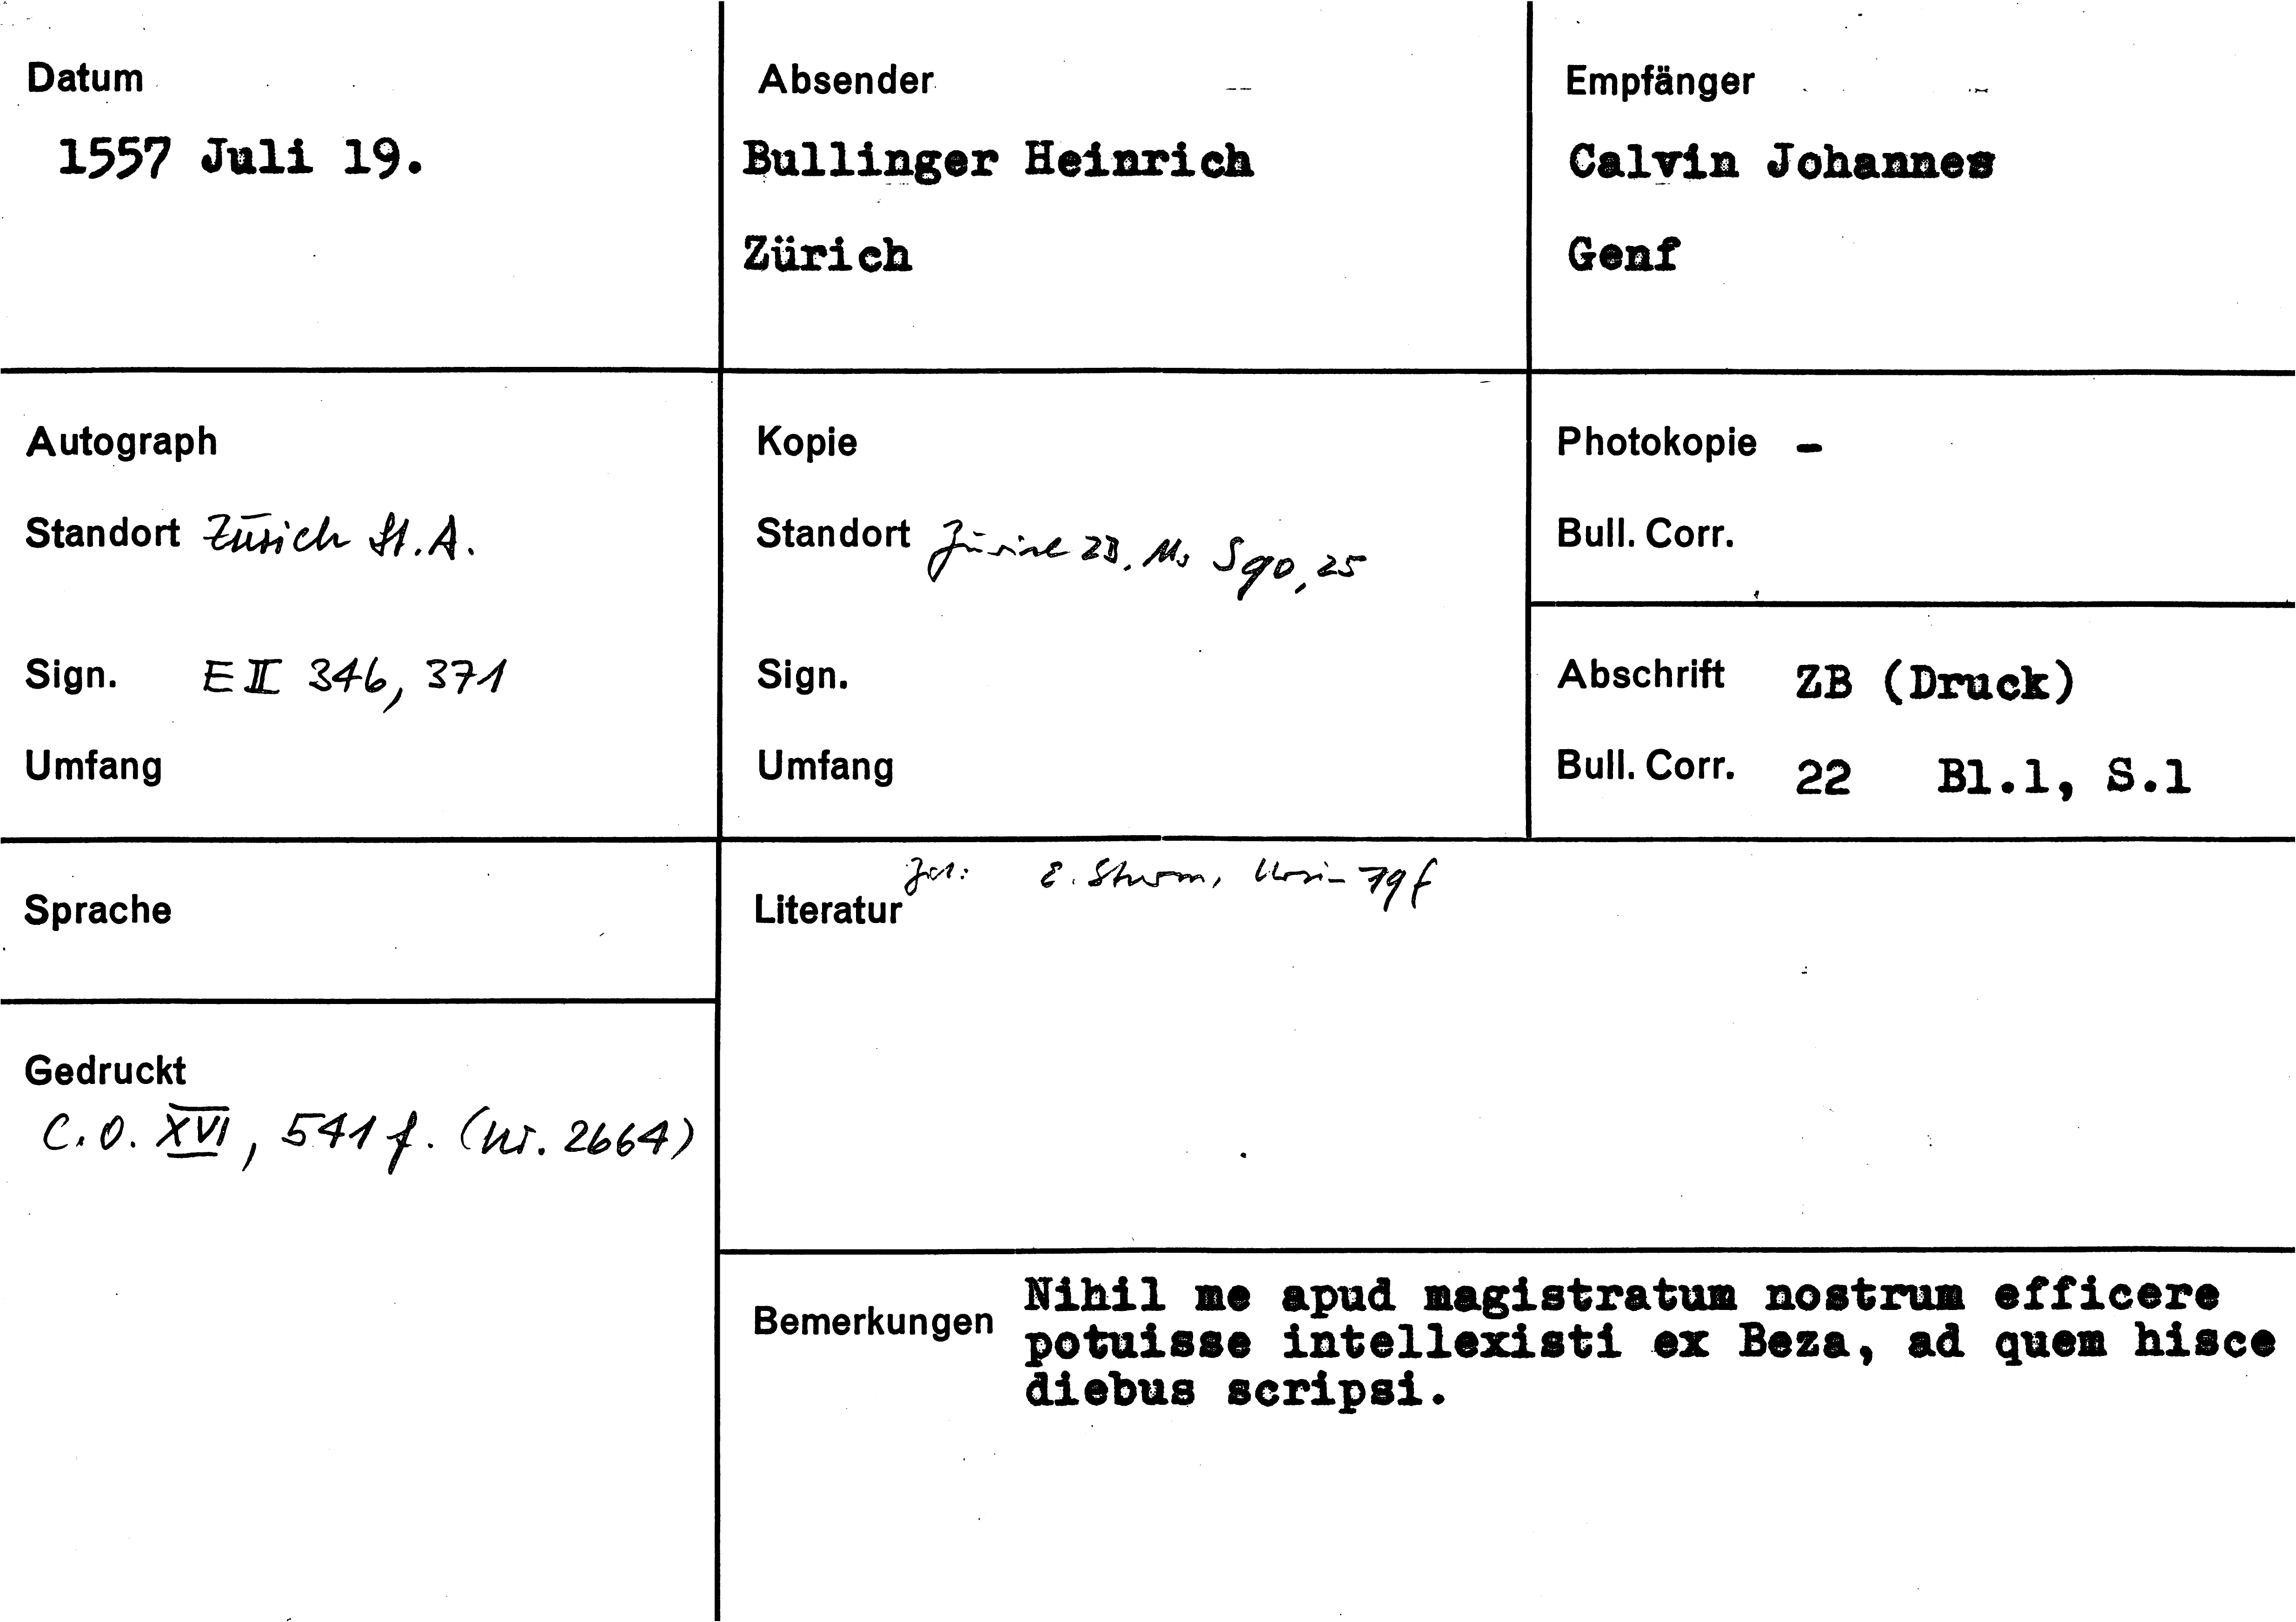 Datum
1557 Juli 19.
Absender
Bullinger Heinrich
Zürich
Empfänger
Calvin Johannes
Genf
Autograph
Standort Zürich St.A.
Sign. E II 346, 371
Umfang
Kopie
Standort Zürich ZB, Ms S 90, 25
Sign.
Umfang
Photokopie -
Bull. Corr.
Abschrift ZB (Druck)
Bull. Corr. 22 Bl.1, S.1
Sprache
Gedruckt
C.O. XVI, 541 f. (Nr. 2664)
Literatur E. Sturm, Ursin 79 f
Bemerkungen Nihil me apud magistratum nostrum efficere
potuisse intellexisti ex Beza, ad quem hisce
diebus scripsi.